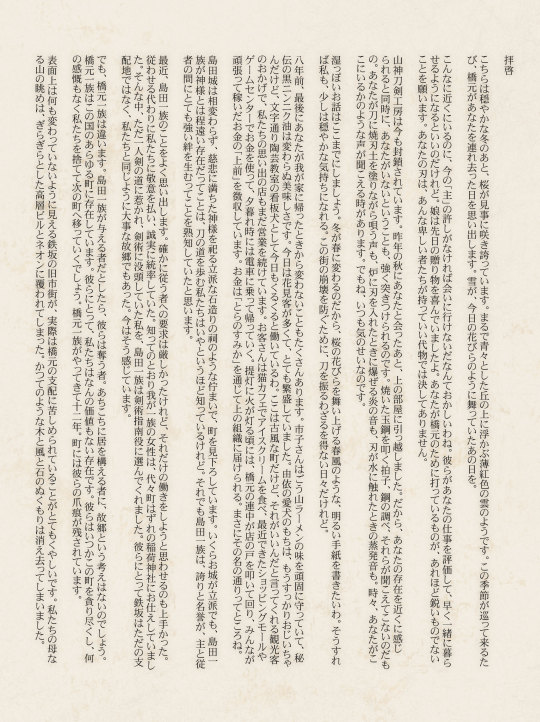 拝啓
こちらは穏やかな冬のあと、桜が見事に咲き誇っています。まるで青々とした丘の上に浮かぶ薄紅色の雲のようです。この季節が巡って来るた
び、橋元があなたを連れ去った日を思い出します。雪が、今日の花びらのように舞っていたあの日を。
こんなに近くにいるのに、今の「主」の許しがなければ会いに行けないだなんておかしいわね。彼らがあなたの仕事を評価して、早く一緒に暮ら
せるようになるといいのだけれど。娘は先日の贈り物を喜んでいましたよ。あなたが橋元のために打っているものが、あれほど鋭いものでない
ことを願います。あなたの刃は、あんな卑しい者たちが持っていい代物では決してありません。
山神刀剣工房は今も封鎖されています。昨年の秋にあなたと会ったあと、上の部屋に引っ越しました。だから、あなたの存在を近くに感じ
られると同時に、あなたがいないということも、強く突きつけられるのです。焼いた玉鋼を叩く拍子、鋼の調べ、それらが聞こえてこないのだも
の。あなたが刀に焼刃土を塗りながら唄う声も、炉に刃を入れたときに爆ぜる炎の音も、刃が水に触れたときの蒸発音も。時々、あなたがこ
こにいるかのような声が聞こえる時があります。でもね、いつも気のせいなのです。
湿っぽいお話はここまでにしましょう。冬が春に変わるのだから、桜の花びらを舞い上げる春風のような、明るい手紙を書きたいわ。そうすれ
ば私も、少しは穏やかな気持ちになれる。この街の崩壊を防ぐために、刀を振るわざるを得ない日々だけれど。
八年前、最後にあなたが我が家に帰ったときから変わないこともたくさんあります。市子さんはごう山ラーメンの味を頑固に守っていて、秘
伝の黒ニンニク油は変わらぬ美味しさです。今日は花見客が多くて、とても繁盛していました。由依の愛犬のもちは、もうすっかりおじいちゃ
んだけど、文字通り陶芸教室の看板犬として今日もくるくると働いているわ。ここは古風な町だけど、それがいいんだと言ってくれる観光客
のおかげで、私たちの思い出の店もまだ営業を続けています。お客さんは猫カフェでアイスクリームを食べ、最近できたショッピングモールや
ゲームセンターでお金を使って、夕暮れ時には電車に乗って帰っていく。提灯に火が灯る頃には、橋元の連中が店の戸を叩いて回り、みんなが
頑張って稼いだお金の「上前」を徴収しています。お金は「とらのすみか」を通じて上の組織に届けられる。まさにその名の通りってところね。
島田城は相変わらず、慈悲に満ちた神様を祀る立派な石造りの祠のような佇まいで、町を見下ろしています。いくらお城が立派でも、島田一
族が神様とは程遠い存在だってことは、刀の道を歩む私たちはいやというほど知っているけれど。それでも島田一族は、誇りと名誉が、主と従
者の間にとても強い絆を生むってことを熟知していたと思います。
最近、島田一族のことをよく思い出します。確かに従う者への要求は厳しかったけれど、それだけの働きをしようと思わせるのも上手かった。
従わせる代わりに私たちに敬意を払い、誠実に統率していた。知ってのとおり我が一族の女性は、代々町はずれの稲荷神社にお仕えしていまし
た。そんな中、ただ一人剣の道に惹かれ、剣術に没頭していた私を、島田一族は剣術指南役に選んでくれました。彼らにとって鉄坂はただの支
配地ではなく、私たちと同じように大事な故郷でもあった。今はそう感じています。
でも、橋元一族は違います。島田一族が与える者だとしたら、彼らは奪う者。あちこちに居を構える者に、故郷という考えはないのでしょう。
橋元一族はこの国のあらゆる町に存在しています。彼らにとって、私たちはなんの価値もない存在です。彼らはいつかこの町を貪り尽くし、何
の感慨もなく私たちを捨てて次の町へ移っていくでしょう。橋元一族がやってきて十二年。町には彼らの爪痕が残されています。
表面上は何も変わっていないように見える鉄坂の旧市街が、実際は橋元の支配に苦しめられていることがとてもくやしいです。私たちの母な
る山の眺めは、ぎらぎらとした高層ビルとネオンに覆われてしまった。かつてのような木と風と石のぬくもりは消え去ってしまいました。